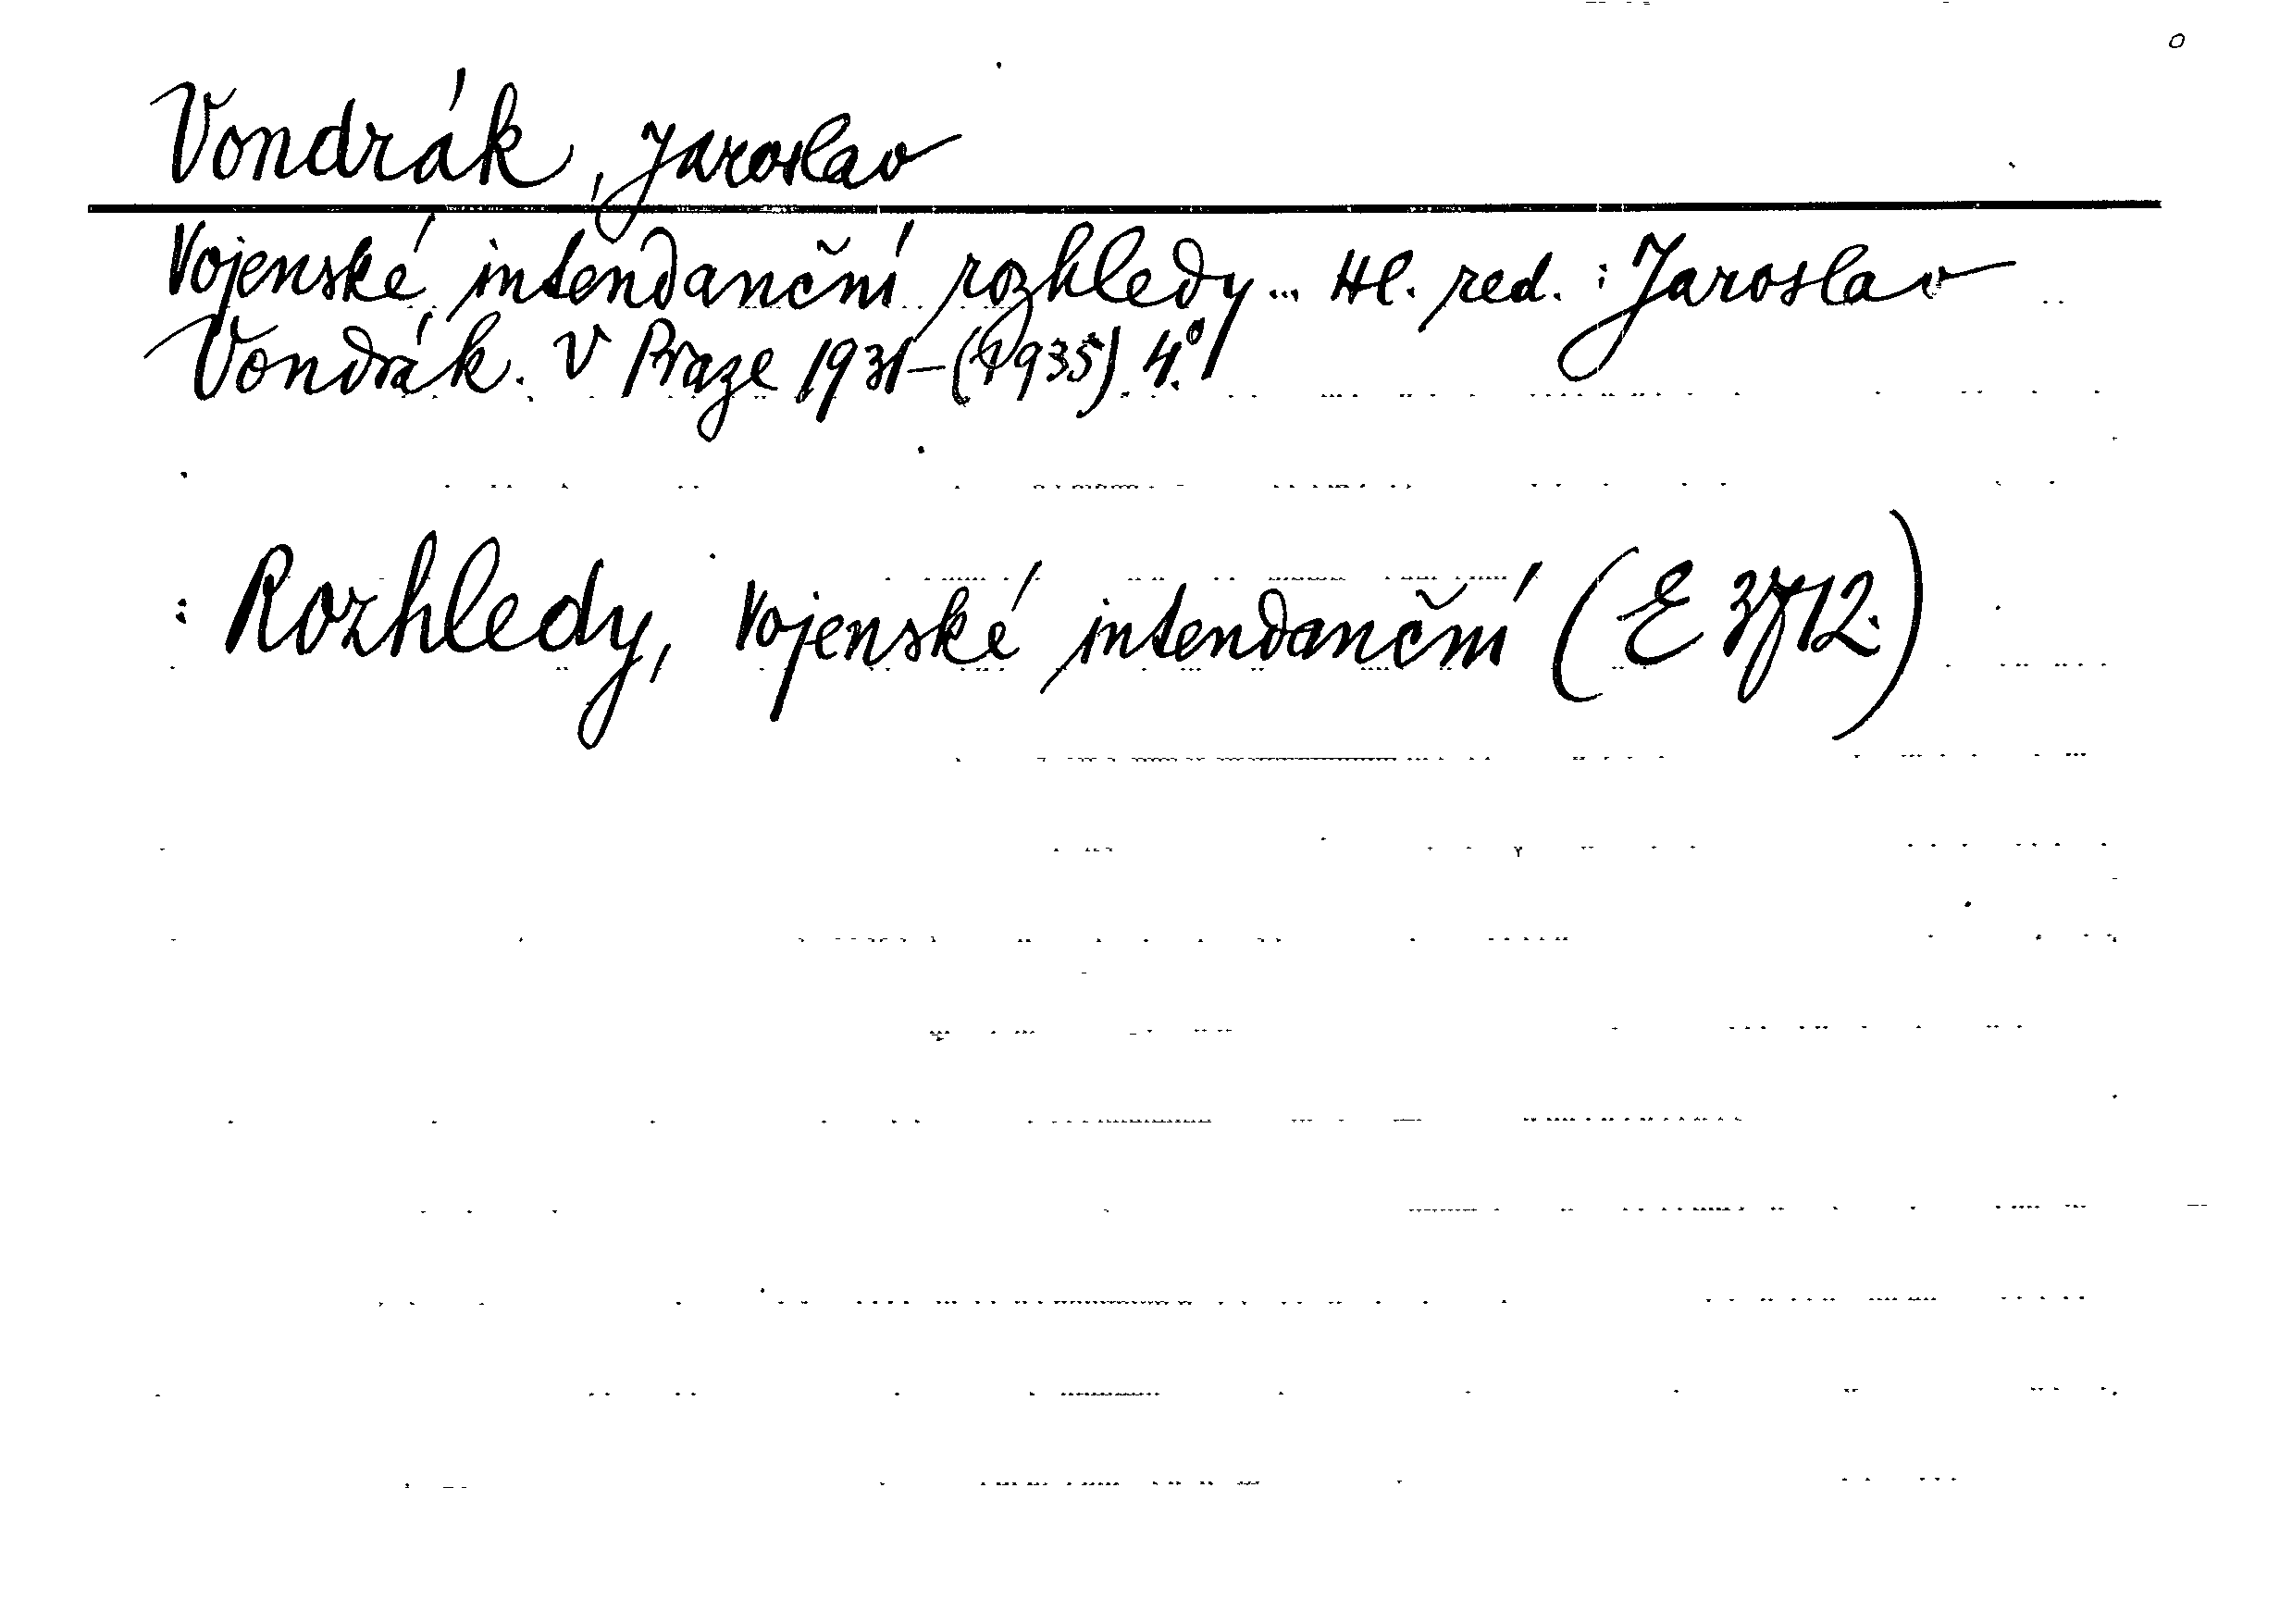 Vondrák, Jaroslav
Vojenské intendanční rozhledy... Hl. red.: Jaroslav
Vondrák. V Praze 1931-(1935). 4.°
: Rozhledy, Vojenské intendanční (E 3712.)